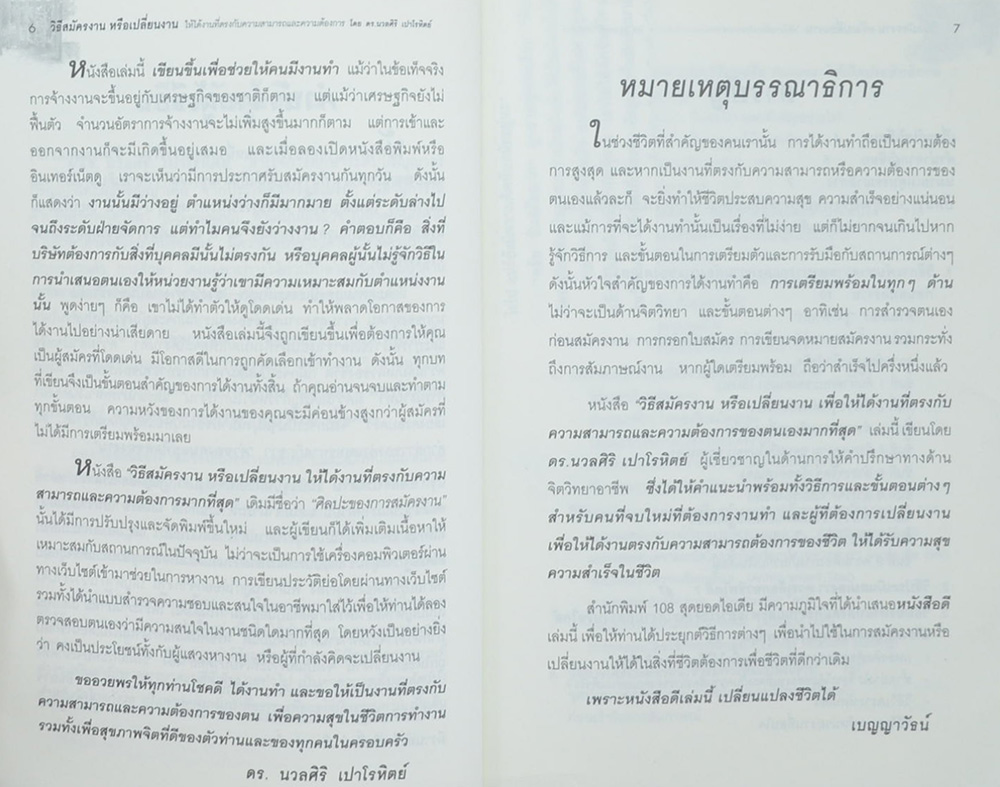 6 วิธีสมัครงาน หรือเปลี่ยนงาน ให้ได้งานที่ตรงกับความสามารถและความต้องการ โดย ดร.นวลศิริ เปาโรหิตย์
หนังสือเล่มนี้ เขียนขึ้นเพื่อช่วยให้คนมีงานทำ แม้ว่าในข้อเท็จจริง
การจ้างงานจะขึ้นอยู่กับเศรษฐกิจของชาติก็ตาม แต่แม้ว่าเศรษฐกิจยังไม่
ฟื้นตัว จำนวนอัตราการจ้างงานจะไม่เพิ่มสูงขึ้นมากก็ตาม แต่การเข้าและ
ออกจากงานก็จะมีเกิดขึ้นอยู่เสมอ และเมื่อลองเปิดหนังสือพิมพ์หรือ
อินเทอร์เน็ตดู เราจะเห็นว่ามีการประกาศรับสมัครงานกันทุกวัน ดังนั้น
ก็แสดงว่า งานนั้นมีว่างอยู่ ตำแหน่งว่างก็มีมากมาย ตั้งแต่ระดับล่างไป
จนถึงระดับฝ่ายจัดการ แต่ทำไมคนจึงยังว่างงาน ? คำตอบก็คือ สิ่งที่
บริษัทต้องการกับสิ่งที่บุคคลมีนั้นไม่ตรงกัน หรือบุคคลผู้นั้นไม่รู้จักวิธีใน
การนำเสนอตนเองให้หน่วยงานรู้ว่าเขามีความเหมาะสมกับตำแหน่งงาน
นั้น พูดง่ายๆ ก็คือ เขาไม่ได้ทำตัวให้ดูโดดเด่น ทำให้พลาดโอกาสของการ
ได้งานไปอย่างน่าเสียดาย หนังสือเล่มนี้จึงถูกเขียนขึ้นเพื่อต้องการให้คุณ
เป็นผู้สมัครที่โดดเด่น มีโอกาสดีในการถูกคัดเลือกเข้าทำงาน ดังนั้น ทุกบท
ที่เขียนจึงเป็นขั้นตอนสำคัญของการได้งานทั้งสิ้น ถ้าคุณอ่านจนจบและทำตาม
ทุกขั้นตอน ความหวังของการได้งานของคุณจะมีค่อนข้างสูงกว่าผู้สมัครที่
ไม่ได้มีการเตรียมพร้อมมาเลย
หนังสือ "วิธีสมัครงาน หรือเปลี่ยนงาน ให้ได้งานที่ตรงกับความ
สามารถและความต้องการมากที่สุด" เดิมมีชื่อว่า "ศิลปะของการสมัครงาน"
นั้นได้มีการปรับปรุงและจัดพิมพ์ขึ้นใหม่ และผู้เขียนก็ได้เพิ่มเติมเนื้อหาให้
เหมาะสมกับสถานการณ์ในปัจจุบัน ไม่ว่าจะเป็นการใช้เครื่องคอมพิวเตอร์ผ่าน
ทางเว็บไซต์เข้ามาช่วยในการหางาน การเขียนประวัติย่อโดยผ่านทางเว็บไซต์
รวมทั้งได้นำแบบสำรวจความชอบและสนใจในอาชีพมาใส่ไว้เพื่อให้ท่านได้ลอง
ตรวจสอบตนเองว่ามีความสนใจในงานชนิดใดมากที่สุด โดยหวังเป็นอย่างยิ่ง
ว่า คงเป็นประโยชน์ทั้งกับผู้แสวงหางาน หรือผู้ที่กำลังคิดจะเปลี่ยนงาน
ขออวยพรให้ทุกท่านโชคดี ได้งานทำ และขอให้เป็นงานที่ตรงกับ
ความสามารถและความต้องการของตน เพื่อความสุขในชีวิตการทำงาน
รวมทั้งเพื่อสุขภาพจิตที่ดีของตัวท่านและของทุกคนในครอบครัว
ดร. นวลศิริ เปาโรหิตย์
7
หมายเหตุบรรณาธิการ
ในช่วงชีวิตที่สำคัญของคนเรานั้น การได้งานทำถือเป็นความต้อง
การสูงสุด และหากเป็นงานที่ตรงกับความสามารถหรือความต้องการของ
ตนเองแล้วละก็ จะยิ่งทำให้ชีวิตประสบความสุข ความสำเร็จอย่างแน่นอน
และแม้การที่จะได้งานทำนั้นเป็นเรื่องที่ไม่ง่าย แต่ก็ไม่ยากจนเกินไปหาก
รู้จักวิธีการ และขั้นตอนในการเตรียมตัวและการรับมือกับสถานการณ์ต่างๆ
ดังนั้นหัวใจสำคัญของการได้งานทำคือ การเตรียมพร้อมในทุกๆ ด้าน
ไม่ว่าจะเป็นด้านจิตวิทยา และขั้นตอนต่างๆ อาทิเช่น การสำรวจตนเอง
ก่อนสมัครงาน การกรอกใบสมัคร การเขียนจดหมายสมัครงาน รวมกระทั่ง
ถึงการสัมภาษณ์งาน หากผู้ใดเตรียมพร้อม ถือว่าสำเร็จไปครึ่งหนึ่งแล้ว
หนังสือ "วิธีสมัครงาน หรือเปลี่ยนงาน เพื่อให้ได้งานที่ตรงกับ
ความสามารถและความต้องการของตนเองมากที่สุด" เล่มนี้ เขียนโดย
ดร.นวลศิริ เปาโรหิตย์ ผู้เชี่ยวชาญในด้านการให้คำปรึกษาทางด้าน
จิตวิทยาอาชีพ ซึ่งได้ให้คำแนะนำพร้อมทั้งวิธีการและขั้นตอนต่างๆ
สำหรับคนที่จบใหม่ที่ต้องการงานทำ และผู้ที่ต้องการเปลี่ยนงาน
เพื่อให้ได้งานตรงกับความสามารถต้องการของชีวิต ให้ได้รับความสุข
ความสำเร็จในชีวิต
สำนักพิมพ์ 108 สุดยอดไอเดีย มีความภูมิใจที่ได้นำเสนอหนังสือดี
เล่มนี้ เพื่อให้ท่านได้ประยุกต์วิธีการต่างๆ เพื่อนำไปใช้ในการสมัครงานหรือ
เปลี่ยนงานให้ได้ในสิ่งที่ชีวิตต้องการเพื่อชีวิตที่ดีกว่าเดิม
เพราะหนังสือดีเล่มนี้ เปลี่ยนแปลงชีวิตได้
เบญญาวัธน์